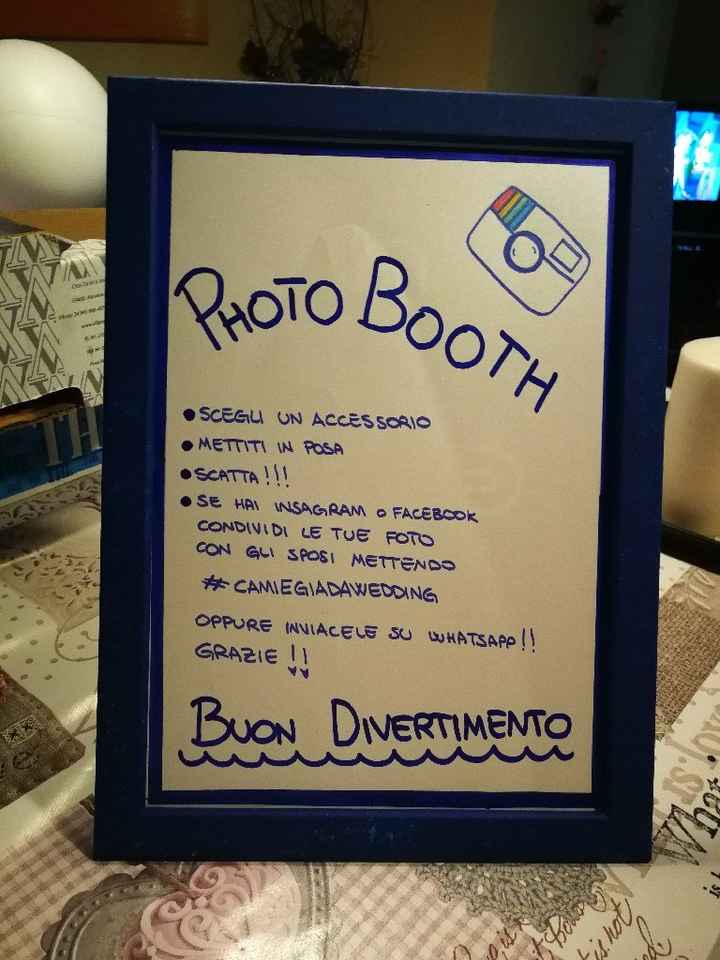 PHOTO BOOTH
• SCEGLI UN ACCESSORIO
• METTITI IN POSA
• SCATTA!!!
• SE HAI INSAGRAM O FACEBOOK
CONDIVIDI LE TUE FOTO
CON GLI SPOSI METTENDO
#CAMIEGIADAWEDDING
OPPURE INVIACELE SU WHATSAPP!!
GRAZIE!!
BUON DIVERTIMENTO